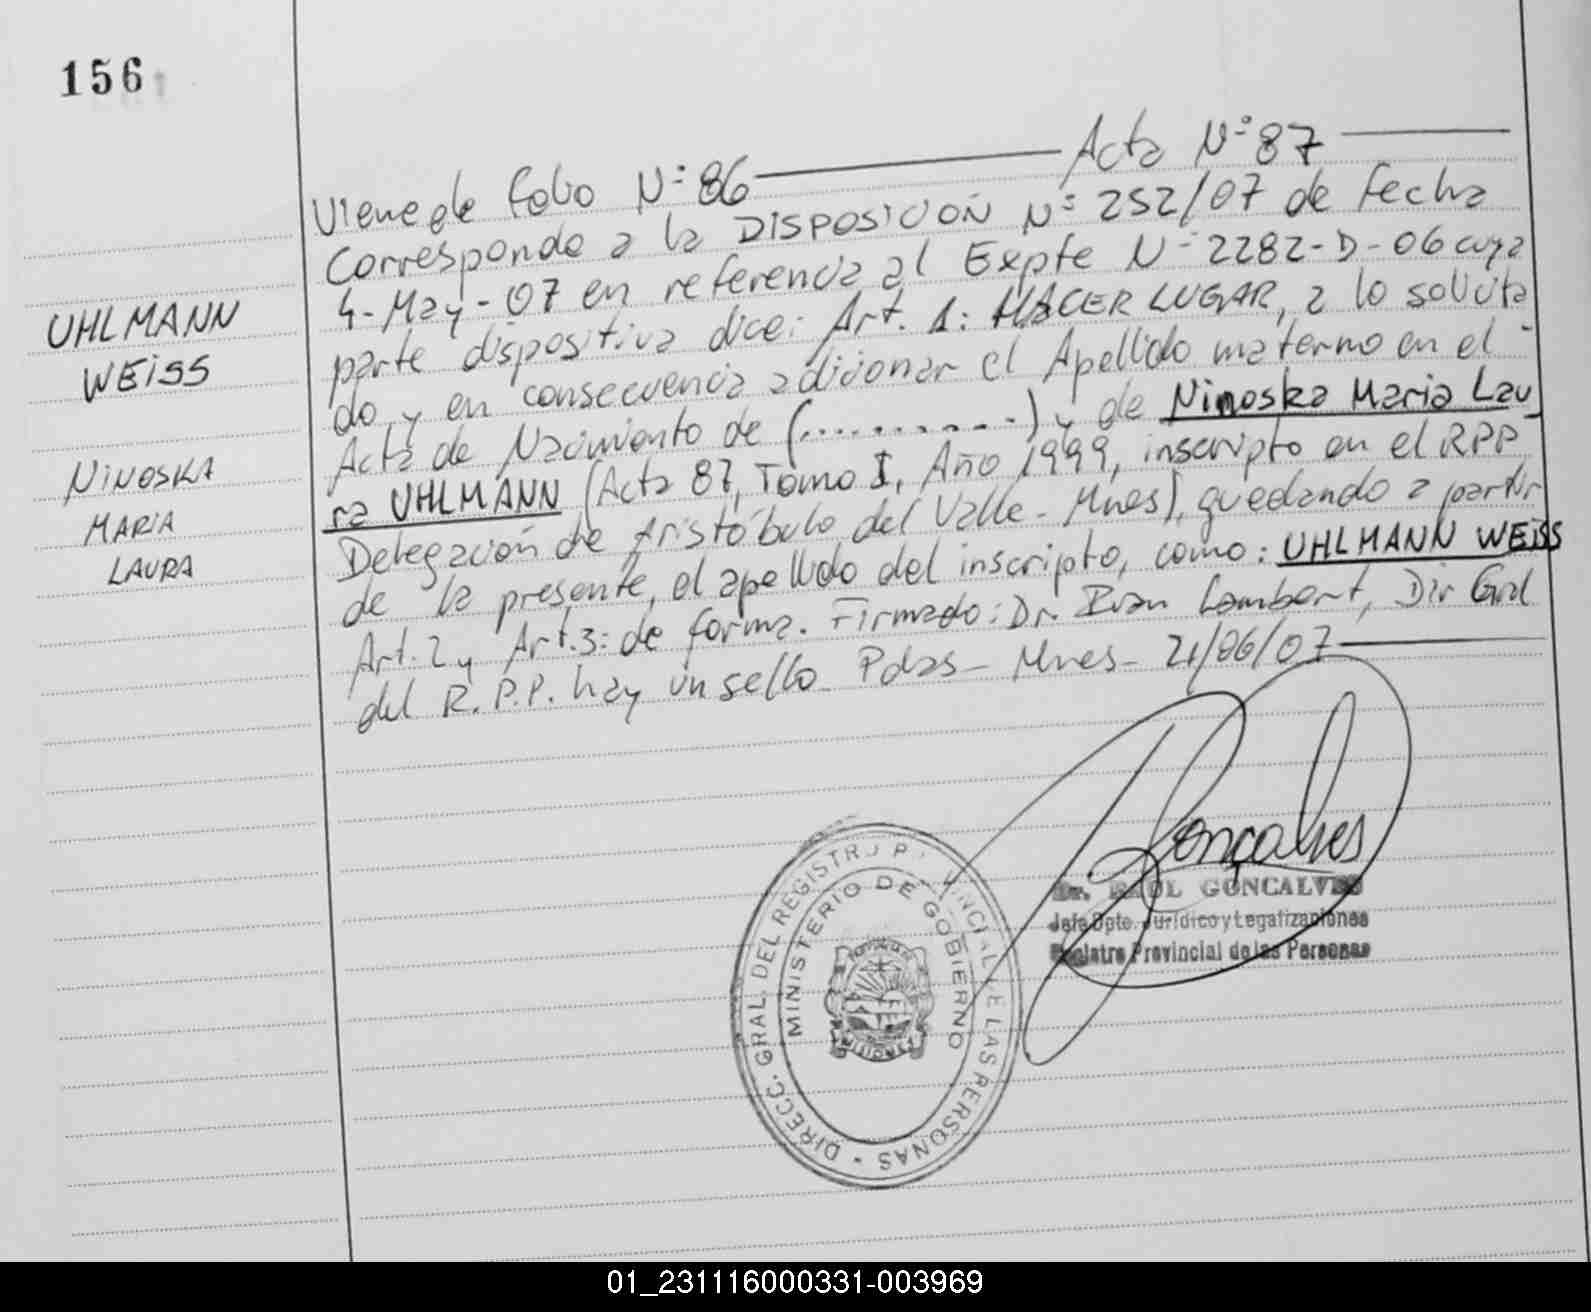 156
UHLMANN
WEiSS
NiNOSKA
MARiA
LAURA
Viene de folio N° 86 Acta N° 87
Corresponde a la DISPOSICION N° 252/07 de fecha
4-May-07 en referencia al Expte N° 2282-D-06 cuya
parte dispositiva dice: Art. 1: HACER LUGAR, a lo solicita
do, y en consecuencia adicionar el Apellido materno en el
Acta de Nacimiento de (..........) y de Ninoska Maria Lau
ra UHLMANN (Acta 87, Tomo I, Año 1999, inscripto en el RPP
Delegación de Aristóbulo del Valle - Mnes), quedando a partir
de la presente, el apellido del inscripto, como: UHLMANN WEiSS
Art. 2 y Art. 3: de forma. Firmado: Dr. Ivan Lambert, Dir Gral
del R.P.P. hay un sello. Pdas - Mnes - 21/06/07
Gonçalves
Dr. RAUL GONÇALVES
Jefe Dpto. Jurídico y Legalizaciones
Registro Provincial de las Personas
DIRECC. GRAL. DEL REGISTRO PROVINCIAL DE LAS PERSONAS
MINISTERIO DE GOBIERNO
MISIONES
01_231116000331-003969